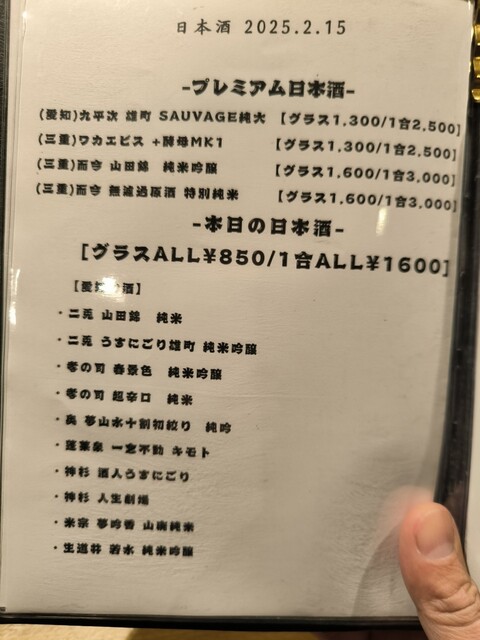 日本酒 2025.2.15
-プレミアム日本酒-
(愛知)九平次 雄町 SAUVAGE純大 【グラス1,300/1合2,500】
(三重)ワカエビス +酵母MK1 【グラス1,300/1合2,500】
(三重)而今 山田錦 純米吟醸 【グラス1,600/1合3,000】
(三重)而今 無濾過原酒 特別純米 【グラス1,600/1合3,000】
-本日の日本酒-
【グラスALL¥850/1合ALL¥1600】
【愛知の酒】
・二兎 山田錦 純米
・二兎 うすにごり雄町 純米吟醸
・孝の司 春景色 純米吟醸
・孝の司 超辛口 純米
・奥 夢山水十割初絞り 純吟
・蓬莱泉 一念不動 キモト
・神杉 酒人うすにごり
・神杉 人生劇場
・米宗 夢吟香 山廃純米
・生道井 若水 純米吟醸